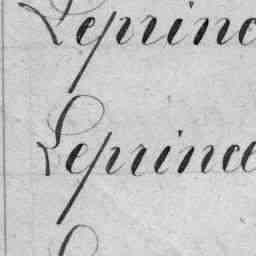 Leprinc
Leprince